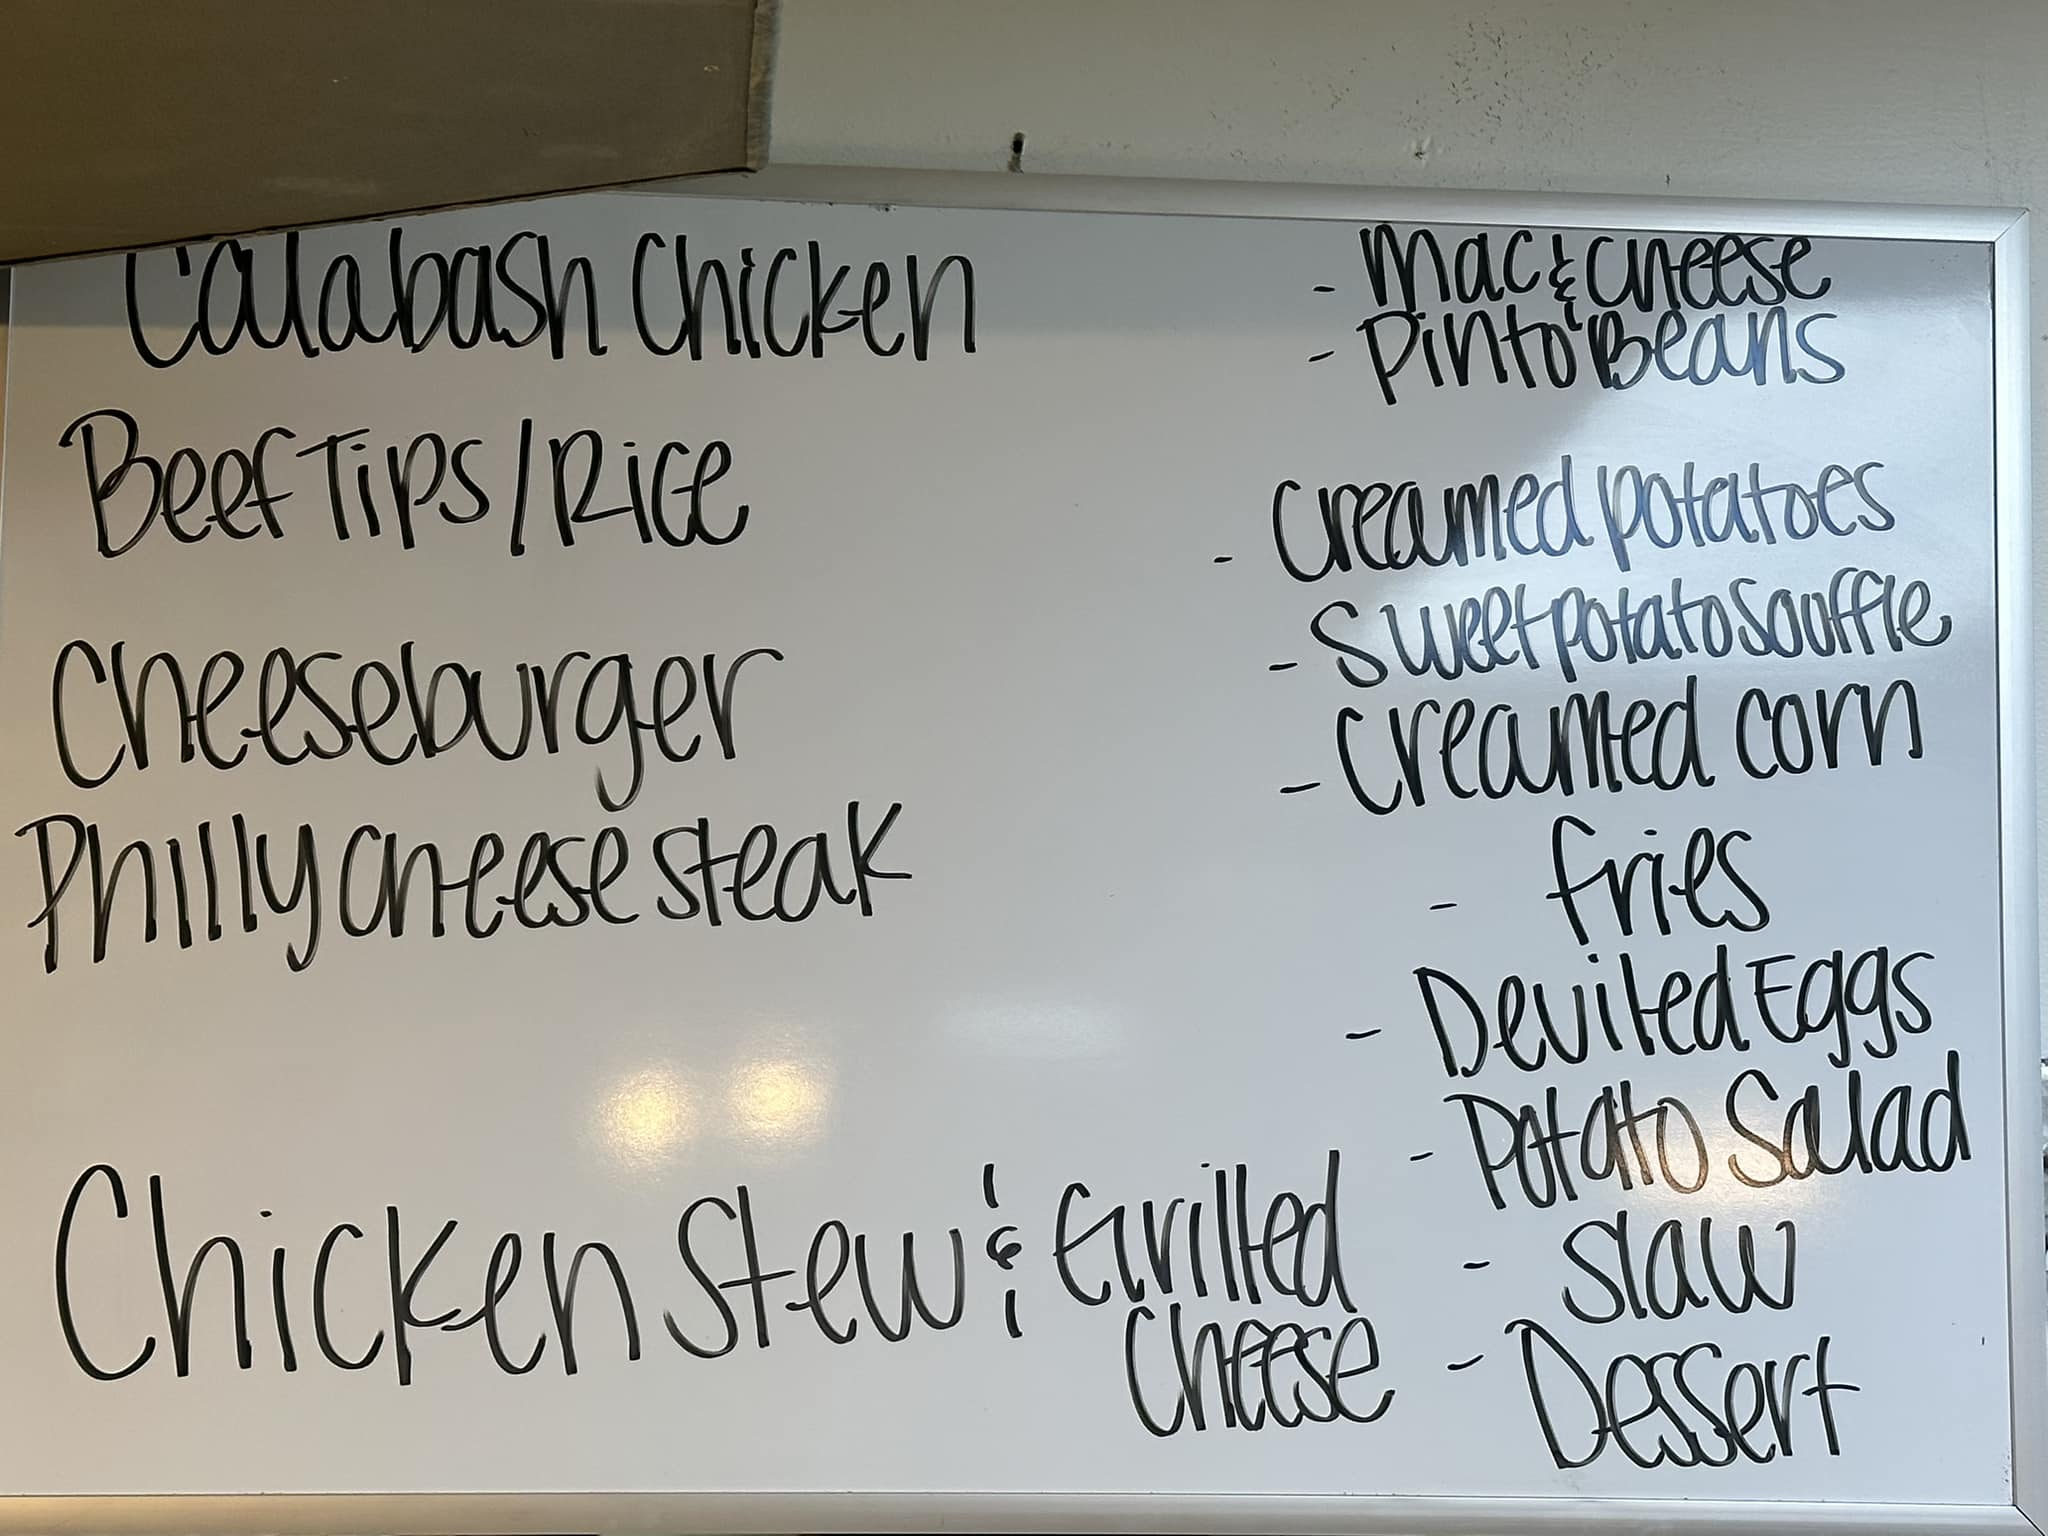 Calabash Chicken
Beef Tips/Rice
Cheeseburger
Philly cheese steak
Chicken Stew & Grilled
Cheese
- Mac & cheese
- Pinto Beans
- Creamed potatoes
- Sweet potato Souffle
- Creamed corn
- fries
- Deviled Eggs
- Potato Salad
- Slaw
- Dessert